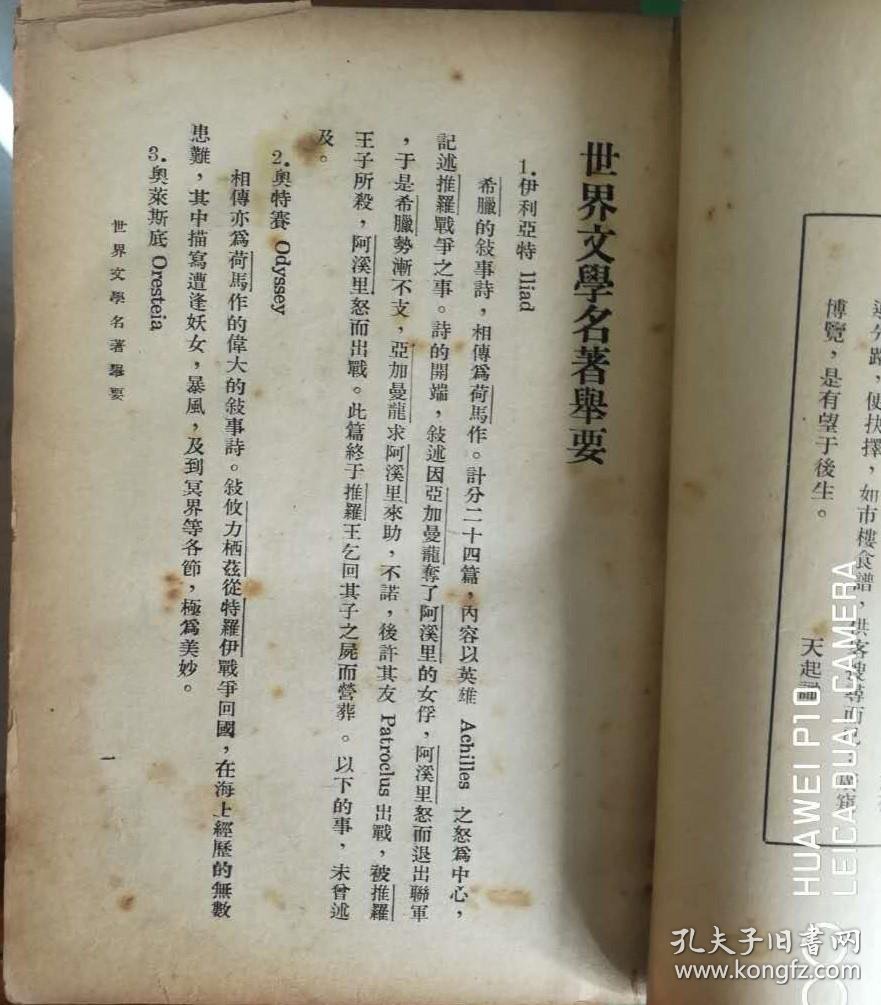 博覽，是有望于後生。
天起識
世界文學名著舉要
1.伊利亞特 Iliad
希臘的敍事詩，相傳爲荷馬作。計分二十四篇，內容以英雄 Achilles 之怒爲中心，
記述推羅戰爭之事。詩的開端，敍述因亞加曼龍奪了阿溪里的女俘，阿溪里怒而退出聯軍
，于是希臘勢漸不支，亞加曼龍求阿溪里來助，不諾，後許其友 Patroclus 出戰，被推羅
王子所殺，阿溪里怒而出戰。此篇終于推羅王乞回其子之屍而營葬。以下的事，未曾述
及。
2.奧特賽 Odyssey
相傳亦爲荷馬作的偉大的敍事詩。敍攸力栖茲從特羅伊戰爭回國，在海上經歷的無數
患難，其中描寫遭逢妖女，暴風，及到冥界等各節，極爲美妙。
3.奧萊斯底 Oresteia
世界文學名著舉要
一
HUAWEI P10
LEICA DUAL CAMERA
孔夫子旧书网
www.kongfz.com